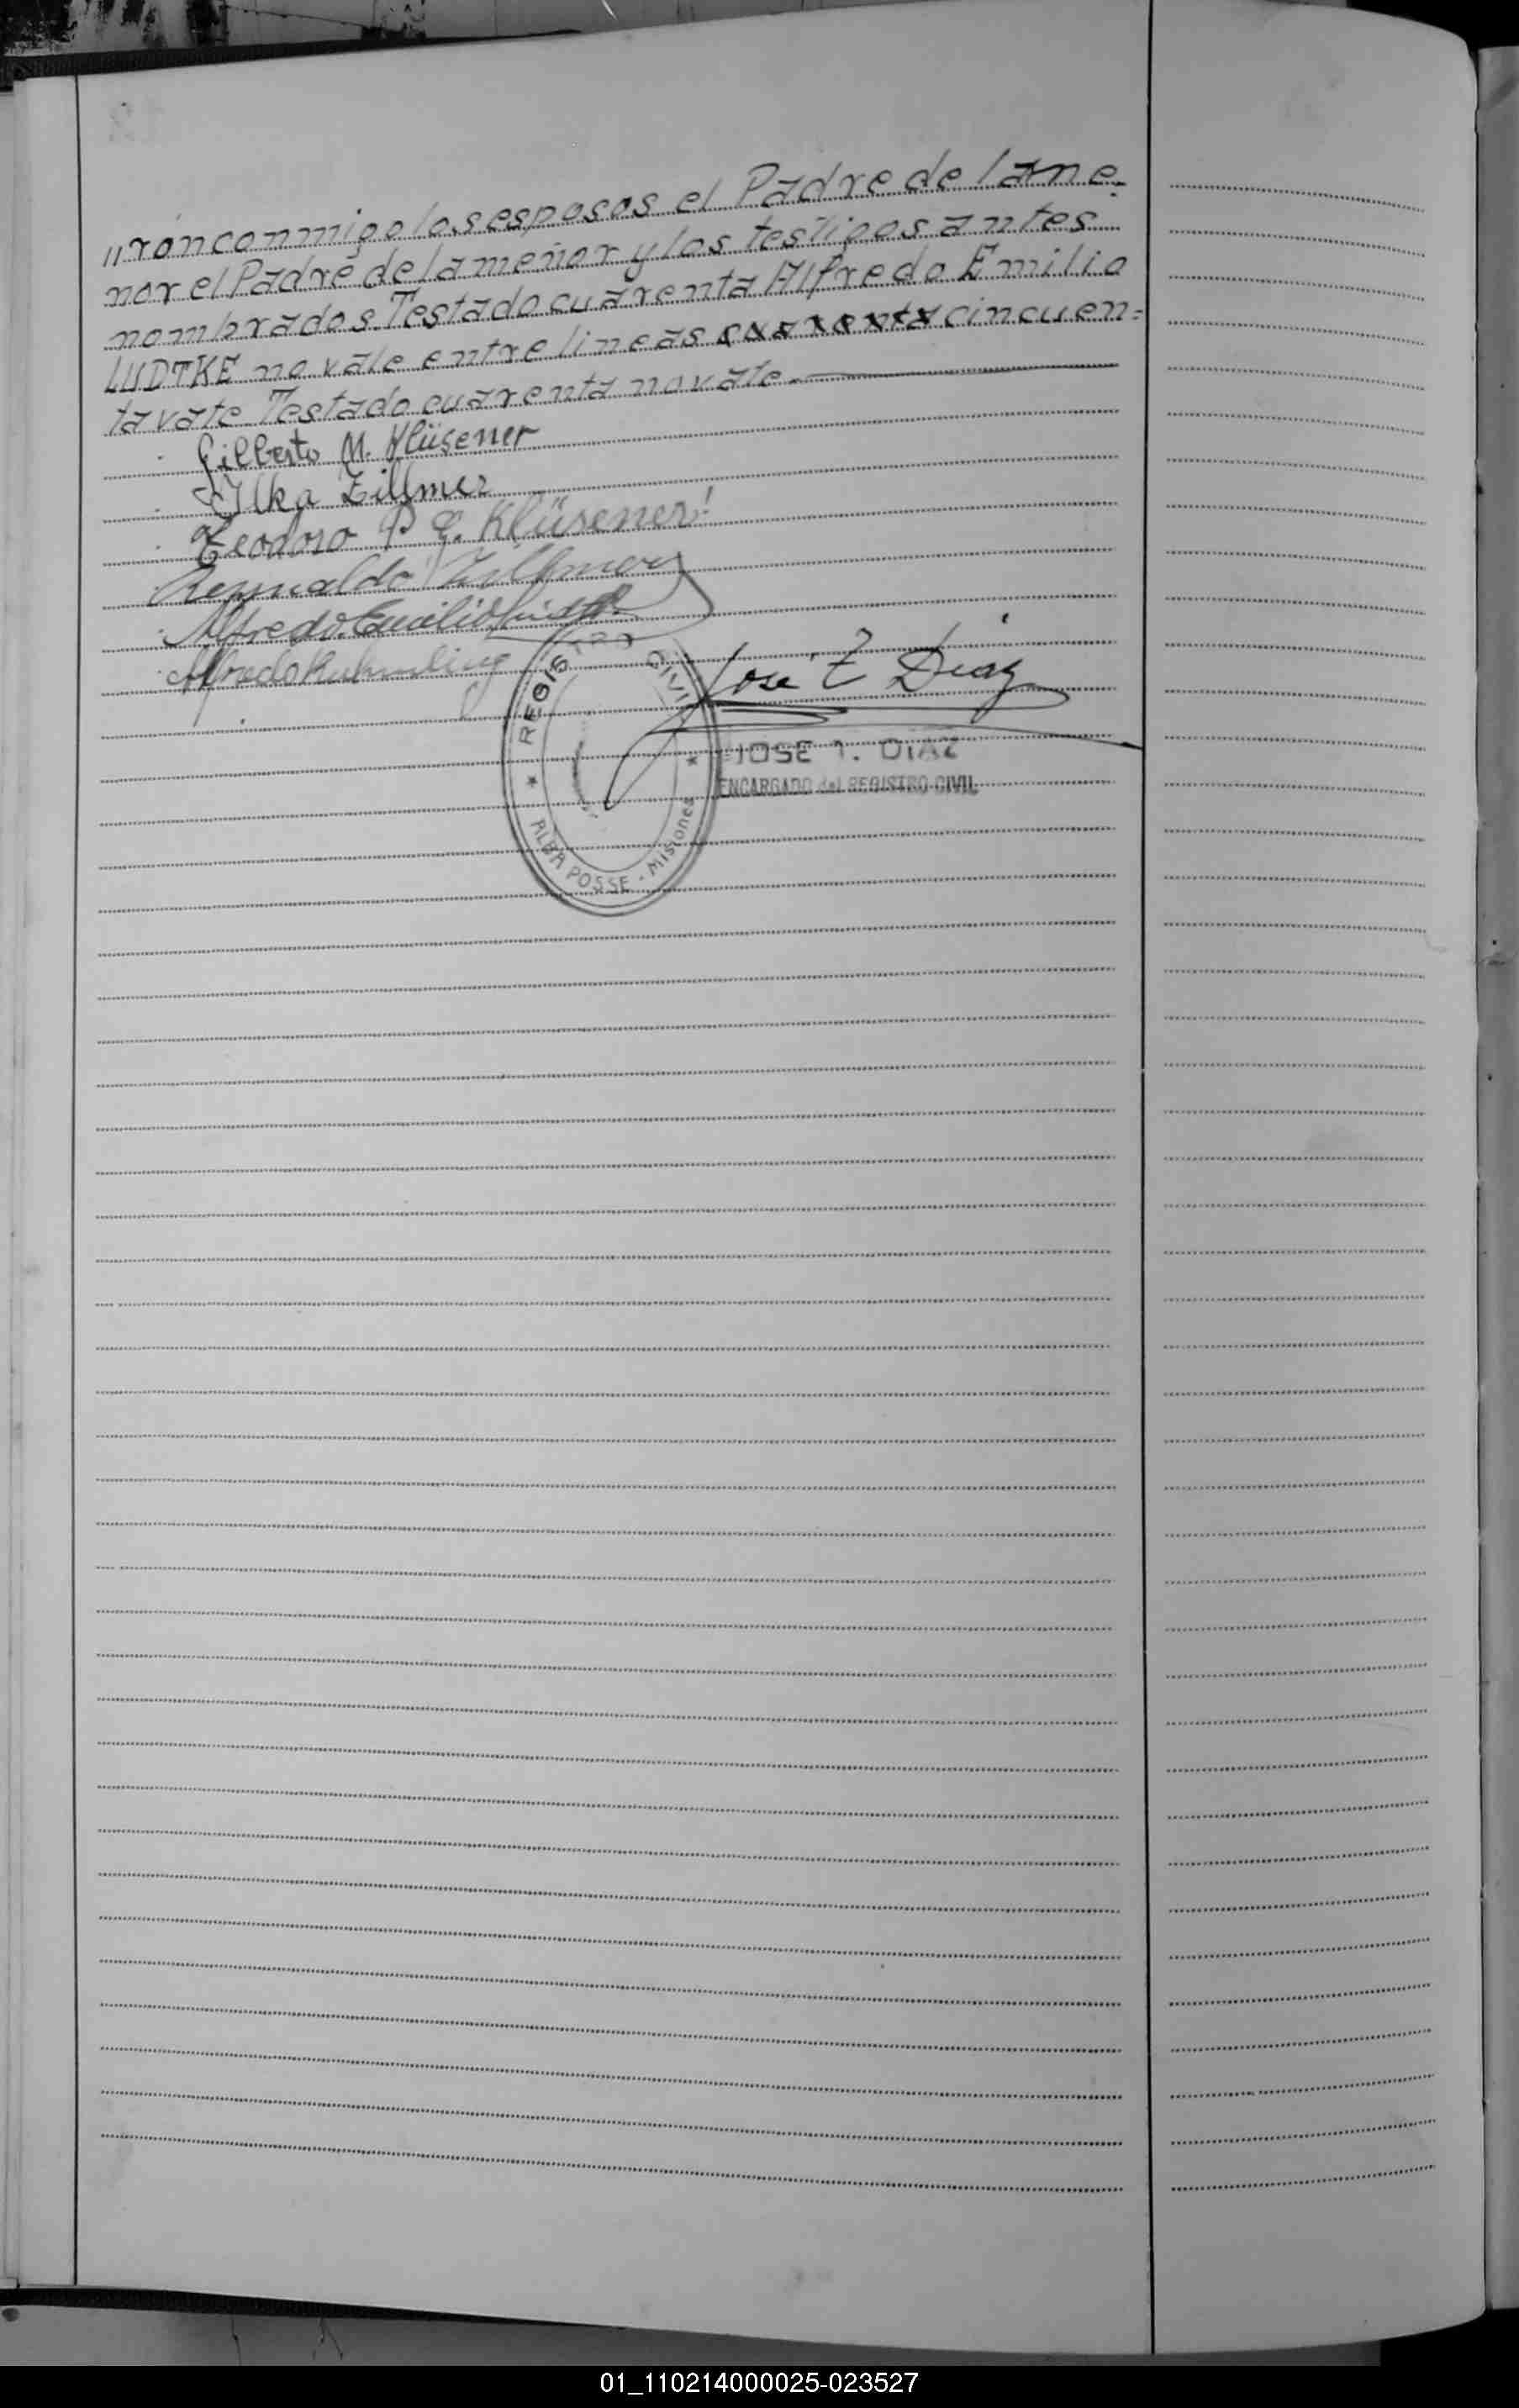 "ron conmigo los esposos el Padre de la me-
nor el Padre de la menor y los testigos antes
nombrados. Testado cuarenta Alfredo Emilio
LUDTKE no vale entre lineas cuarenta cincuen=
ta vale Testado cuarenta no vale.
Gilberto M. Klüsener
Ilka Zillmer
Teodoro P E. Klüsener
Reynaldo Zillmer
Alfredo Emilio
Alfredo
José I Diaz
REGISTRO CIVIL
JOSE I. DIAZ
ENCARGADO del REGISTRO CIVIL
ALBA POSSE - Misiones
01_110214000025-023527